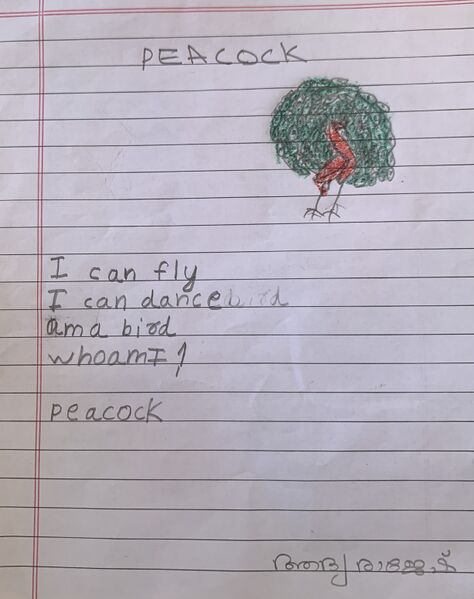 PEACOCK
I can fly
I can dance bird
ama bird
whoamI!
peacock